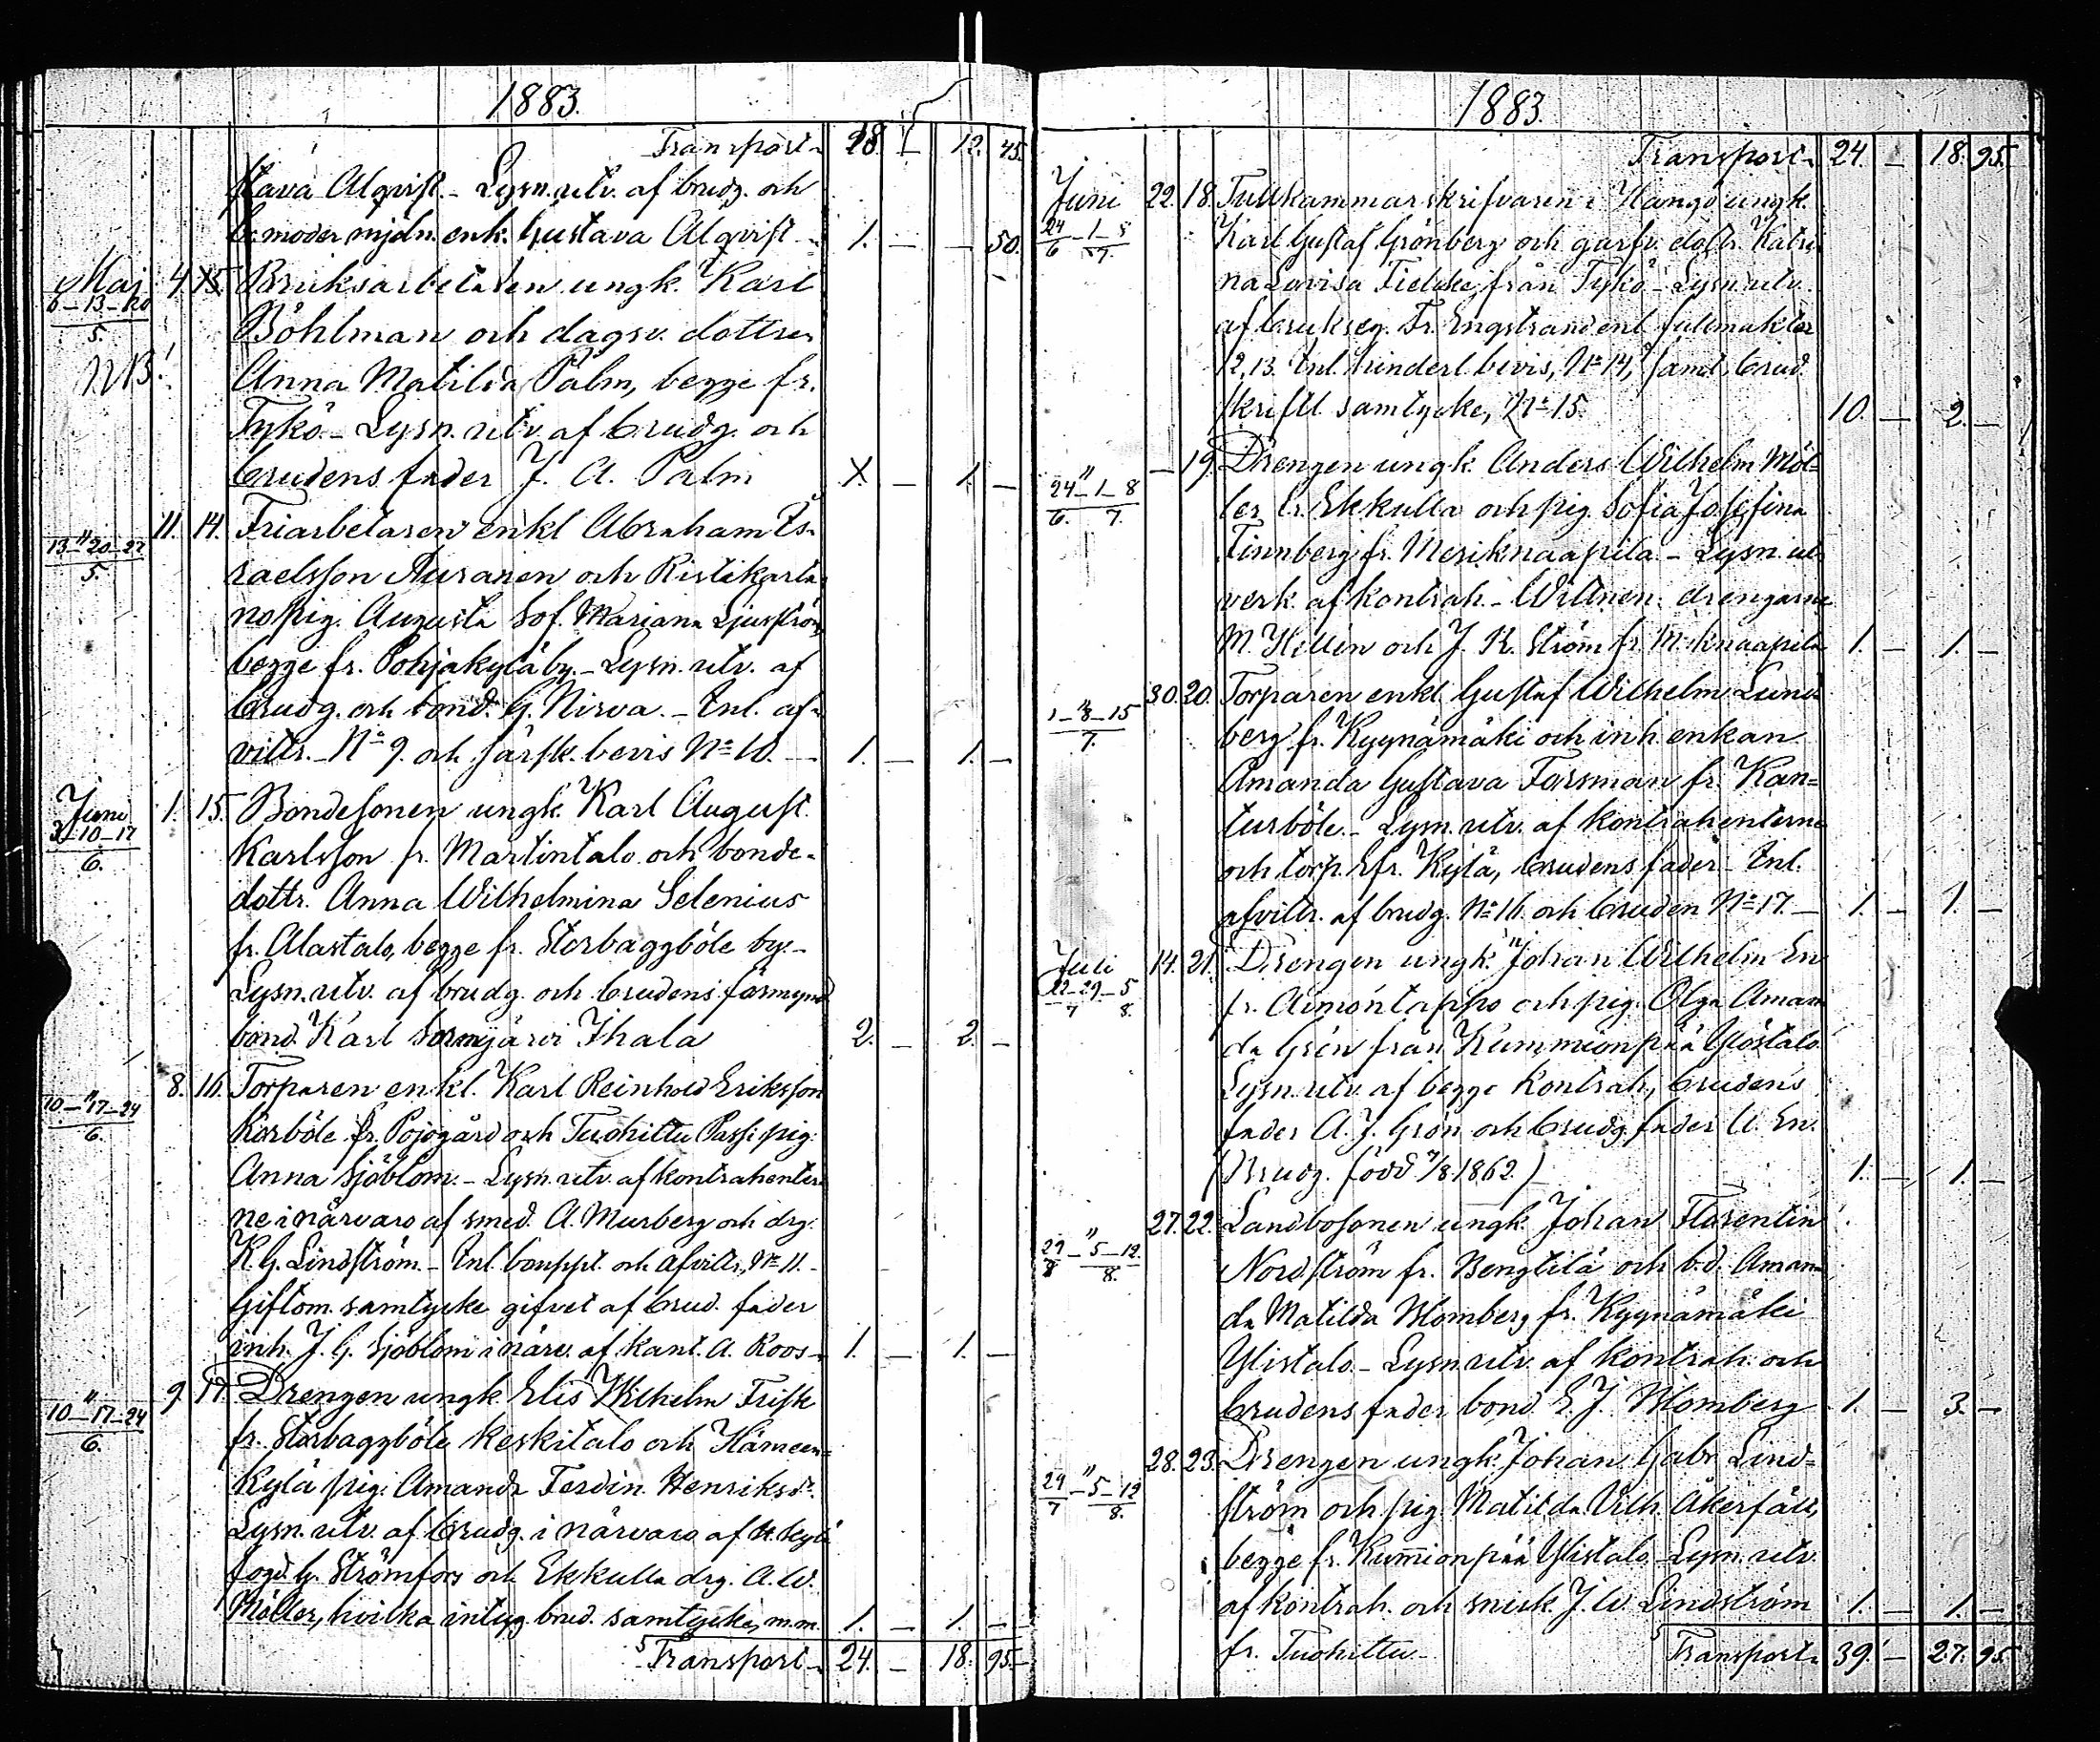 1883.
Transport 18. — 12. 45.
stava Alqvist. - Lysn. utv. af brudg. och
b. moder mjdn. enk. Gustava Alqvist 1. — — 50.
Maj 4. 13. Bruksarbetaren ungk. Karl
6-13-20
5.
Böhlman och dagsv. dottren
NB!
Anna Matilda Palm, begge fr.
Tykö - Lysn. utv. af brudg. och
brudens fader J. A. Palm X. — 1. —
" 11. 14. Friarbetaren enkl Abraham Is-
13-20-27
5.
raelsson Auranen och Ristikarta
no pig. Augusta Sof. Mariana Ljusström,
begge fr. Pohjakylä by. - Lysn. utv. af
brudg. och bond. G. Nirva. - Inl. af-
vittr. - No 9. och särsk. bevis No 10. — 1. — 1. —
Juni 1. 15. Bondesonen ungk. Karl August
3-10-17
6.
Karlsson fr. Martintalo och bonde-
dottr. Anna Wilhelmina Selenius
fr. Alastalo, begge fr. Storbaggböle by. -
Lysn. utv. af brudg. och brudens förmynd
bond. Karl Sormjärvi Ihala 2. — 2. —
" 8. 16. Torparen enkl. Karl Reinhold Eriksson
10-17-24
6.
Korböle fr. Pojogård och Tuohittu Passi pig.
Anna Sjöblom. - Lysn. utv. af kontrahenter
ne i närvaro af smed. A. Murberg och drg.
K. G. Lindström. - Inl. bouppt. och afvittr, No 11. -
Giftom. samtycke gifvet af brud. fader
inh. J. G. Sjöblom i närv. af kant. A. Roos 1. — 1. —
" 9. 17. Drengen ungk. Elis Wilhelm Frisk
10-17-24
6.
fr. Storbaggböle Keskitalo och Hämeen-
kylä pig. Amanda Ferdin. Henriksd.
Lysn. utv. af brudg. i närvaro af H. kylä
fogd. G. Strömfors och Ekkulla drg. A. W.
Möller, hvilka intyg. brud. samtycke, m.m. 1. — 1. —
Transport 24. — 18. 95.
1883.
Transport 24. — 18. 95.
Juni 22. 18. Tullkammarskrifvaren i Hangö ungk.
24-1-8
6 7.
Karl Gustaf Grönberg och garfv. dottr. Katri
na Lovisa from Tykö - Lysn. utv.
af brukseg. Fr. Engstrand enl. fullmakter
12, 13. Inl. hinderl. bevis, No 14, samt brud.
skriftl. samtycke, No 15. 10. — 2. —
" — 19. Drengen ungk. Anders Wilhelm Möl-
24-1-8
6. 7.
ler fr. Ekkulla och pig. Sofia Josefina
Finnberg fr. Meriknaapila. - Lysn. ut
verk. af kontrah. - Wittnen: drengarne
M. Hellen och J. K. Ström fr. M:knaapila 1. — 1. —
" 30. 20. Torparen enkl. Gustaf Wilhelm Lund
1-8-15
7.
berg fr. Kyynämäki och inh. enkan
Amanda Gustava Forsman fr. Kan-
turböle. - Lysn. utv. af kontrahenterne
och torp. fr. Kylä, brudens fader. Inl.
afvittr. af brudg. No 16. och bruden No 17. — 1. — 1. —
Juli 14. 21. Drengen ungk. Johan Wilhelm En
22-29-5
7 8.
fr. Aimontappo och pig. Olga Aman
da Grön från Kummionpää Yliostalo
Lysn. utv. af begge kontrah., brudens
fader A. J. Grön och brudg. fader A. En.
(Brudg. född /8 1862.) 1. — 1. —
" 27. 22. Landbosonen ungk. Johan Florentin
29-5-12.
8 8.
Nordström fr. Bengtilä och b.d. Aman
da Matilda Blomberg fr. Kyynämäki
Ylistalo - Lysn. utv. af kontrah. och
brudens fader bond. E. J. Blomberg 1. — 3. —
" 28. 23. Drengen ungk. Johan Gabr. Lind-
29-5-12
7 8.
ström och pig. Matilda Vilh. Åkerfält,
begge fr. Kumionpää Ylistalo. - Lysn. utv.
af kontrah. och snick. J. W. Lindström 1. — 1. —
fr. Tuohittu - Transport 39. — 27. 95.